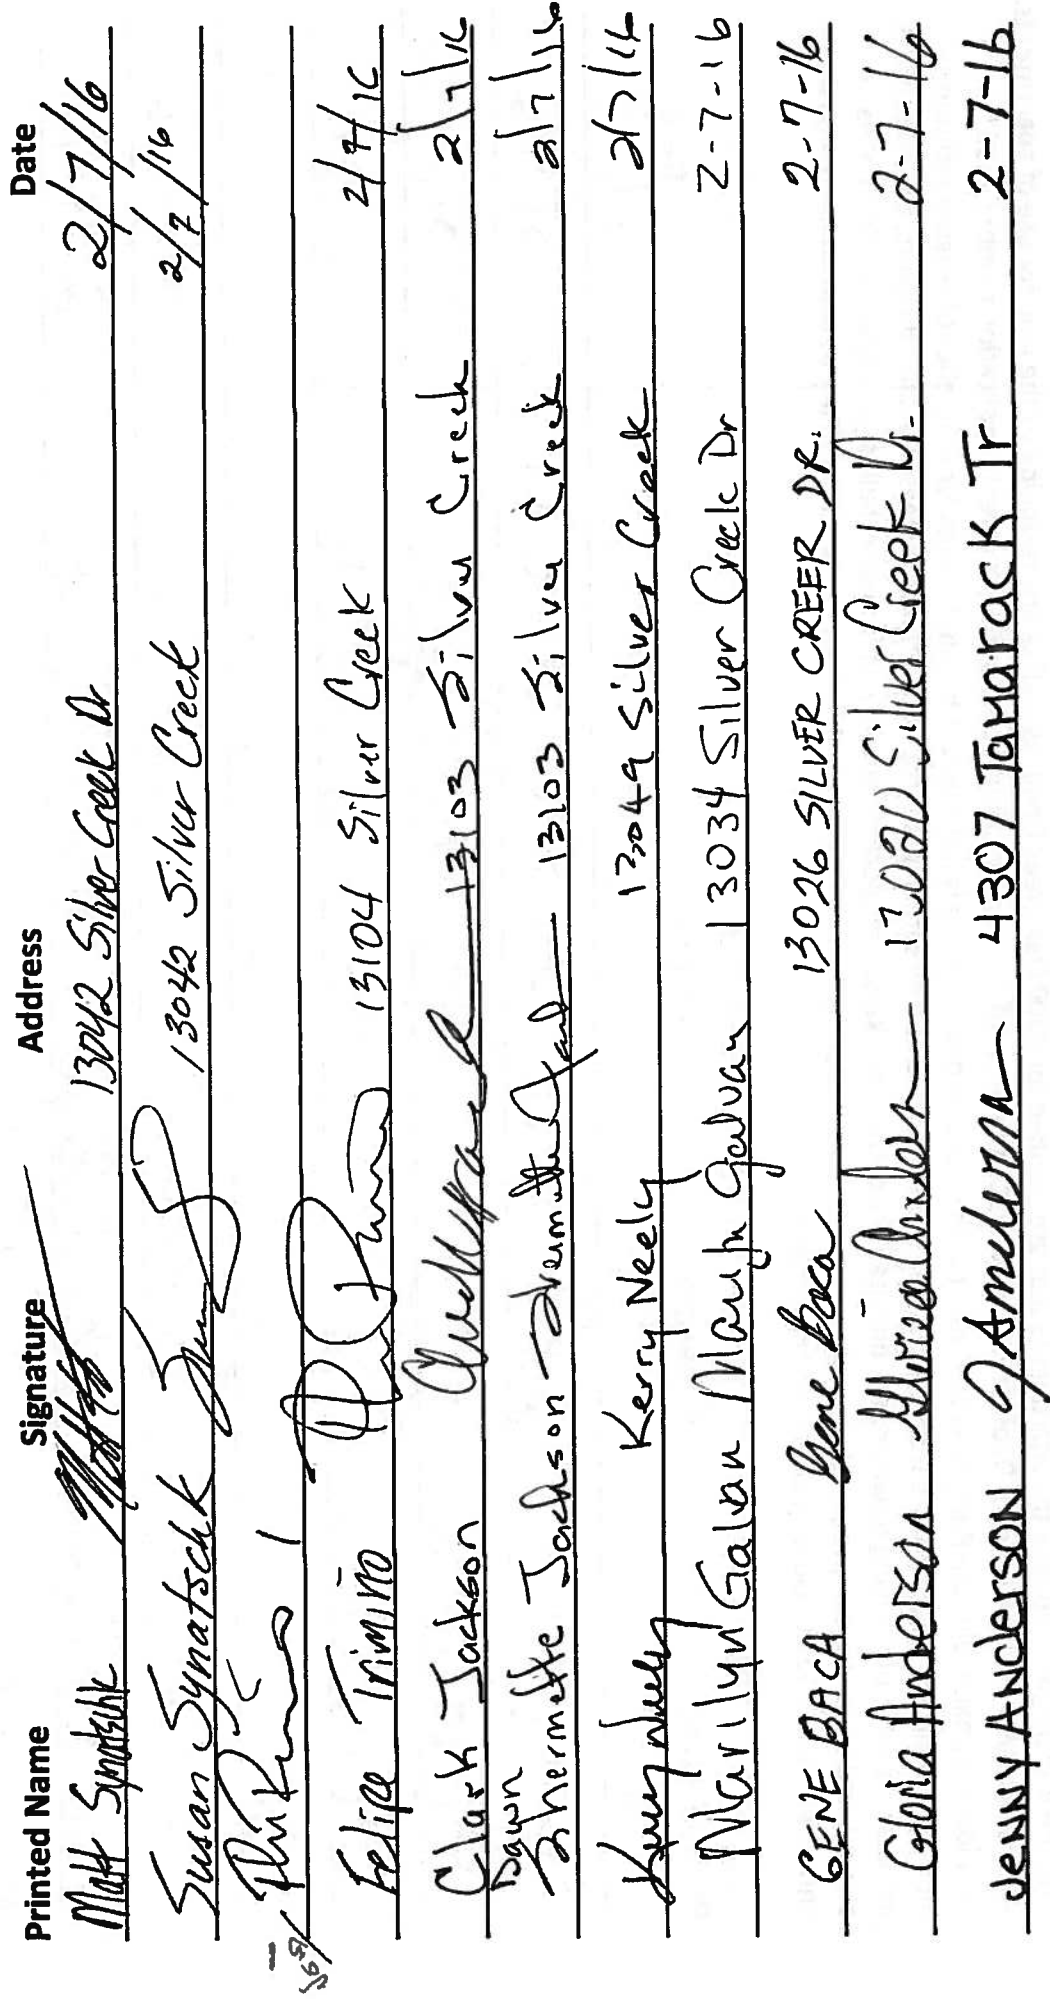 Printed Name Signature Address Date
Matt Synatschk 13042 Silver Creek Dr 2/7/16
Susan Synatschk 13042 Silver Creek 2/7/16
Felipe Trimiño 13104 Silver Creek 2/7/16
Clark Jackson 13103 Silver Creek 2/7/16
Dawn
Shermette Jackson 13103 Silver Creek 2/7/16
Kerry Neely Kerry Neely 13049 Silver Creek 2/7/16
Marilyn Galvan Marilyn Galvan 13034 Silver Creek Dr 2-7-16
GENE BACA Gene Baca 13026 SILVER CREEK DR. 2-7-16
Gloria Anderson Gloria Anderson 13020 Silver Creek Dr. 2-7-16
JENNY ANDERSON J Anderson 4307 TAMARACK Tr 2-7-16